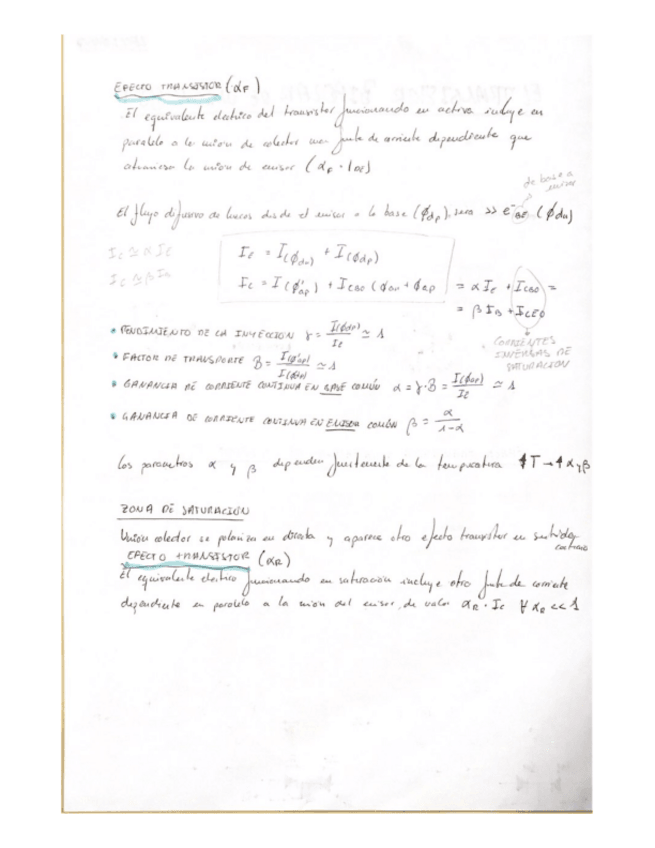 EFECTO TRANSISTOR (αF)
El equivalente electrico del transistor funcionando en activa incluye en
paralelo a la union de colector una fuente de corriente dependiente que
atraviesa la union de emisor (αF · IDE)
de base a
emisor
El flujo difusivo de huecos desde el emisor a la base (ϕdp), sera >> e⁻BE (ϕdn)
IE = I(ϕdn) + I(ϕdp)
IC ≅ α IE
IC = I(ϕ'ap) + ICBO (ϕan + ϕap = α IE + ICBO =
IC ≅ β IB
= β IB + ICEO
• RENDIMIENTO DE LA INYECCION γ = I(ϕdp)/IE ≃ 1
CORRIENTES
INVERSAS DE
SATURACION
• FACTOR DE TRANSPORTE B = I(ϕ'ap)/I(ϕdp) ≃ 1
• GANANCIA DE CORRIENTE CONTINUA EN BASE COMÚN α = γ · B = I(ϕap)/IE ≃ 1
• GANANCIA DE CORRIENTE CONTINUA EN EMISOR COMÚN β = α/1-α
Los parametros α y β dependen fuertemente de la temperatura ↑T → ↑ α y β
ZONA DE SATURACION
Unión colector se polariza en directa y aparece otro efecto transistor en sentido
contrario
EFECTO TRANSISTOR (αR)
El equivalente electrico funcionando en saturacion incluye otro fuente de corriente
dependiente en paralelo a la union del emisor, de valor αR · IC ∀ αR << 1